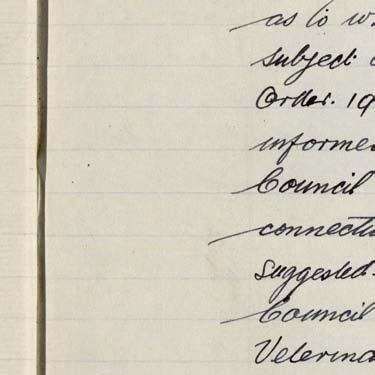 as to w
subject
Order. 19
informe
Council
connecti
suggested.
Council
Veterina